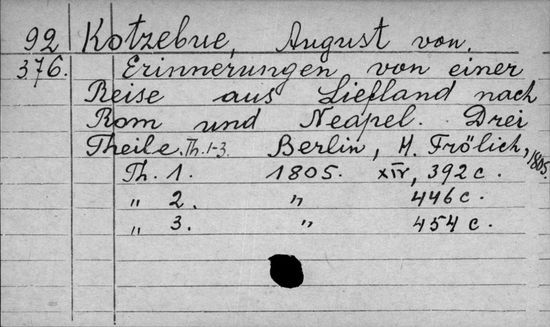 92 Kotzebue, August von.
376. Erinnerungen von einer
Reise aus Liefland nach
Rom und Neapel. Drei
Theile. Th. 1-3. Berlin, H. Frölich, 1805.
Th. 1. 1805. XIV, 392 c.
„ 2. „ 446 c.
„ 3. „ 454 c.